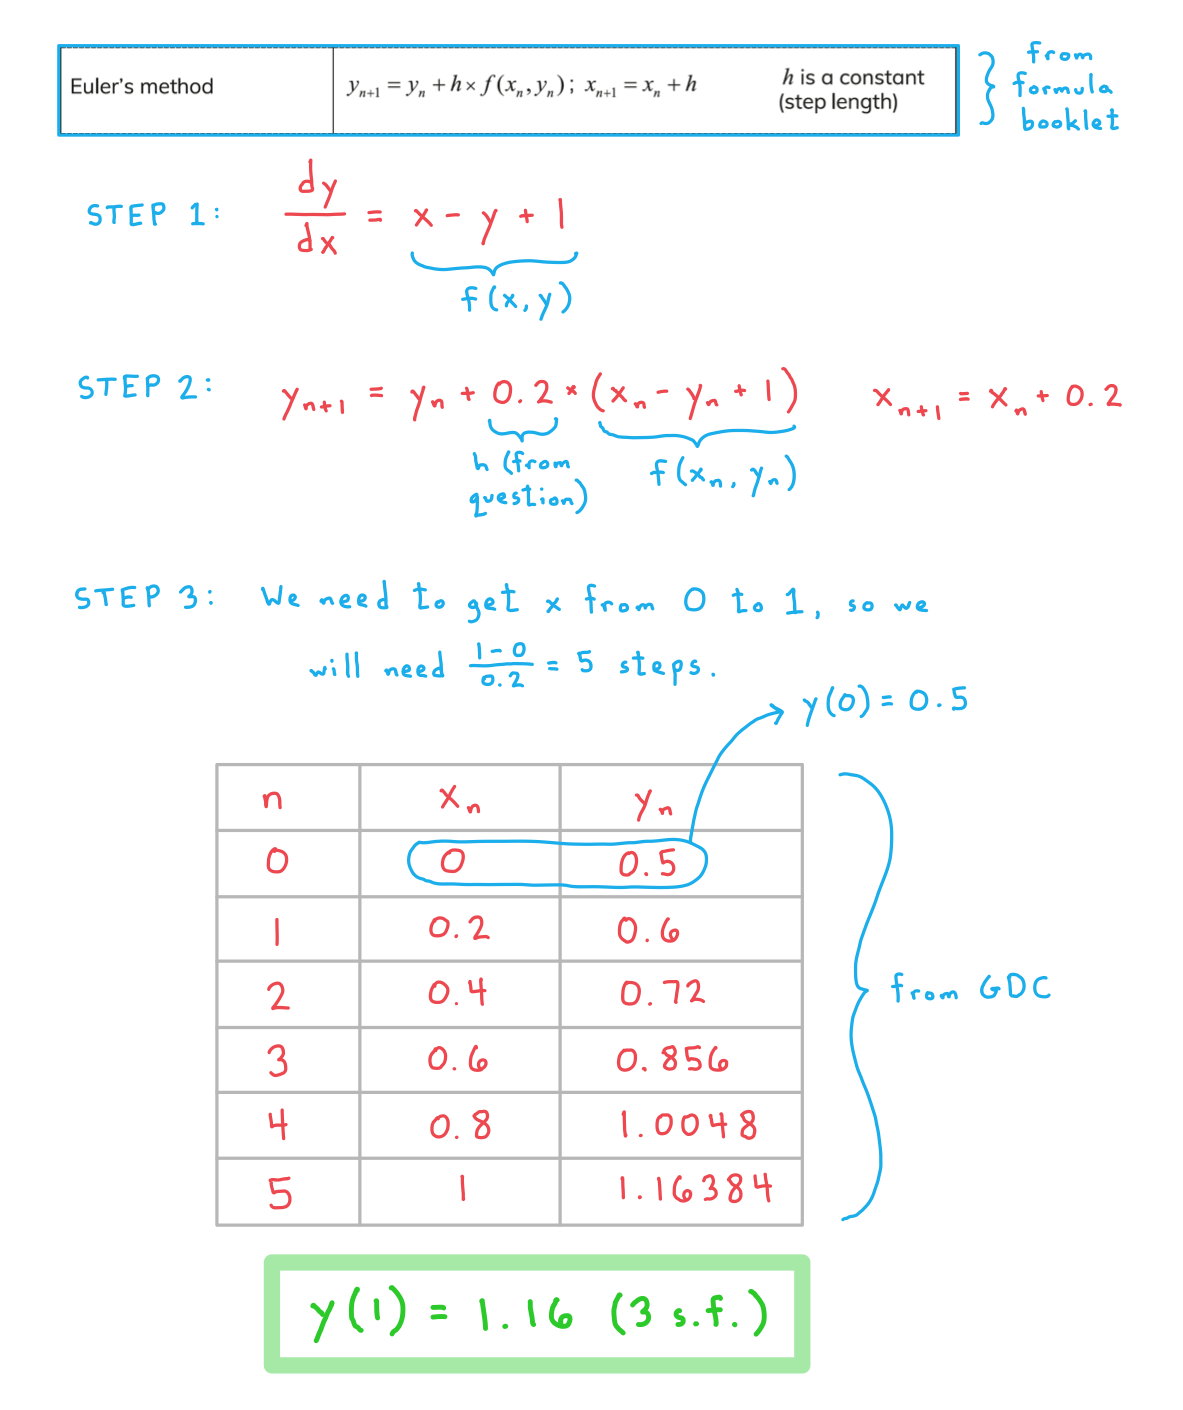 Euler's method yₙ₊₁ = yₙ + h × f(xₙ, yₙ); xₙ₊₁ = xₙ + h h is a constant (step length)
from formula booklet
STEP 1: dy/dx = x - y + 1
f(x, y)
STEP 2: yₙ₊₁ = yₙ + 0.2 × (xₙ - yₙ + 1) xₙ₊₁ = xₙ + 0.2
h (from question) f(xₙ, yₙ)
STEP 3: We need to get x from 0 to 1, so we
will need (1-0)/0.2 = 5 steps.
y(0) = 0.5
n xₙ yₙ
0 0 0.5
1 0.2 0.6
2 0.4 0.72
3 0.6 0.856
4 0.8 1.0048
5 1 1.16384
from GDC
y(1) = 1.16 (3 s.f.)